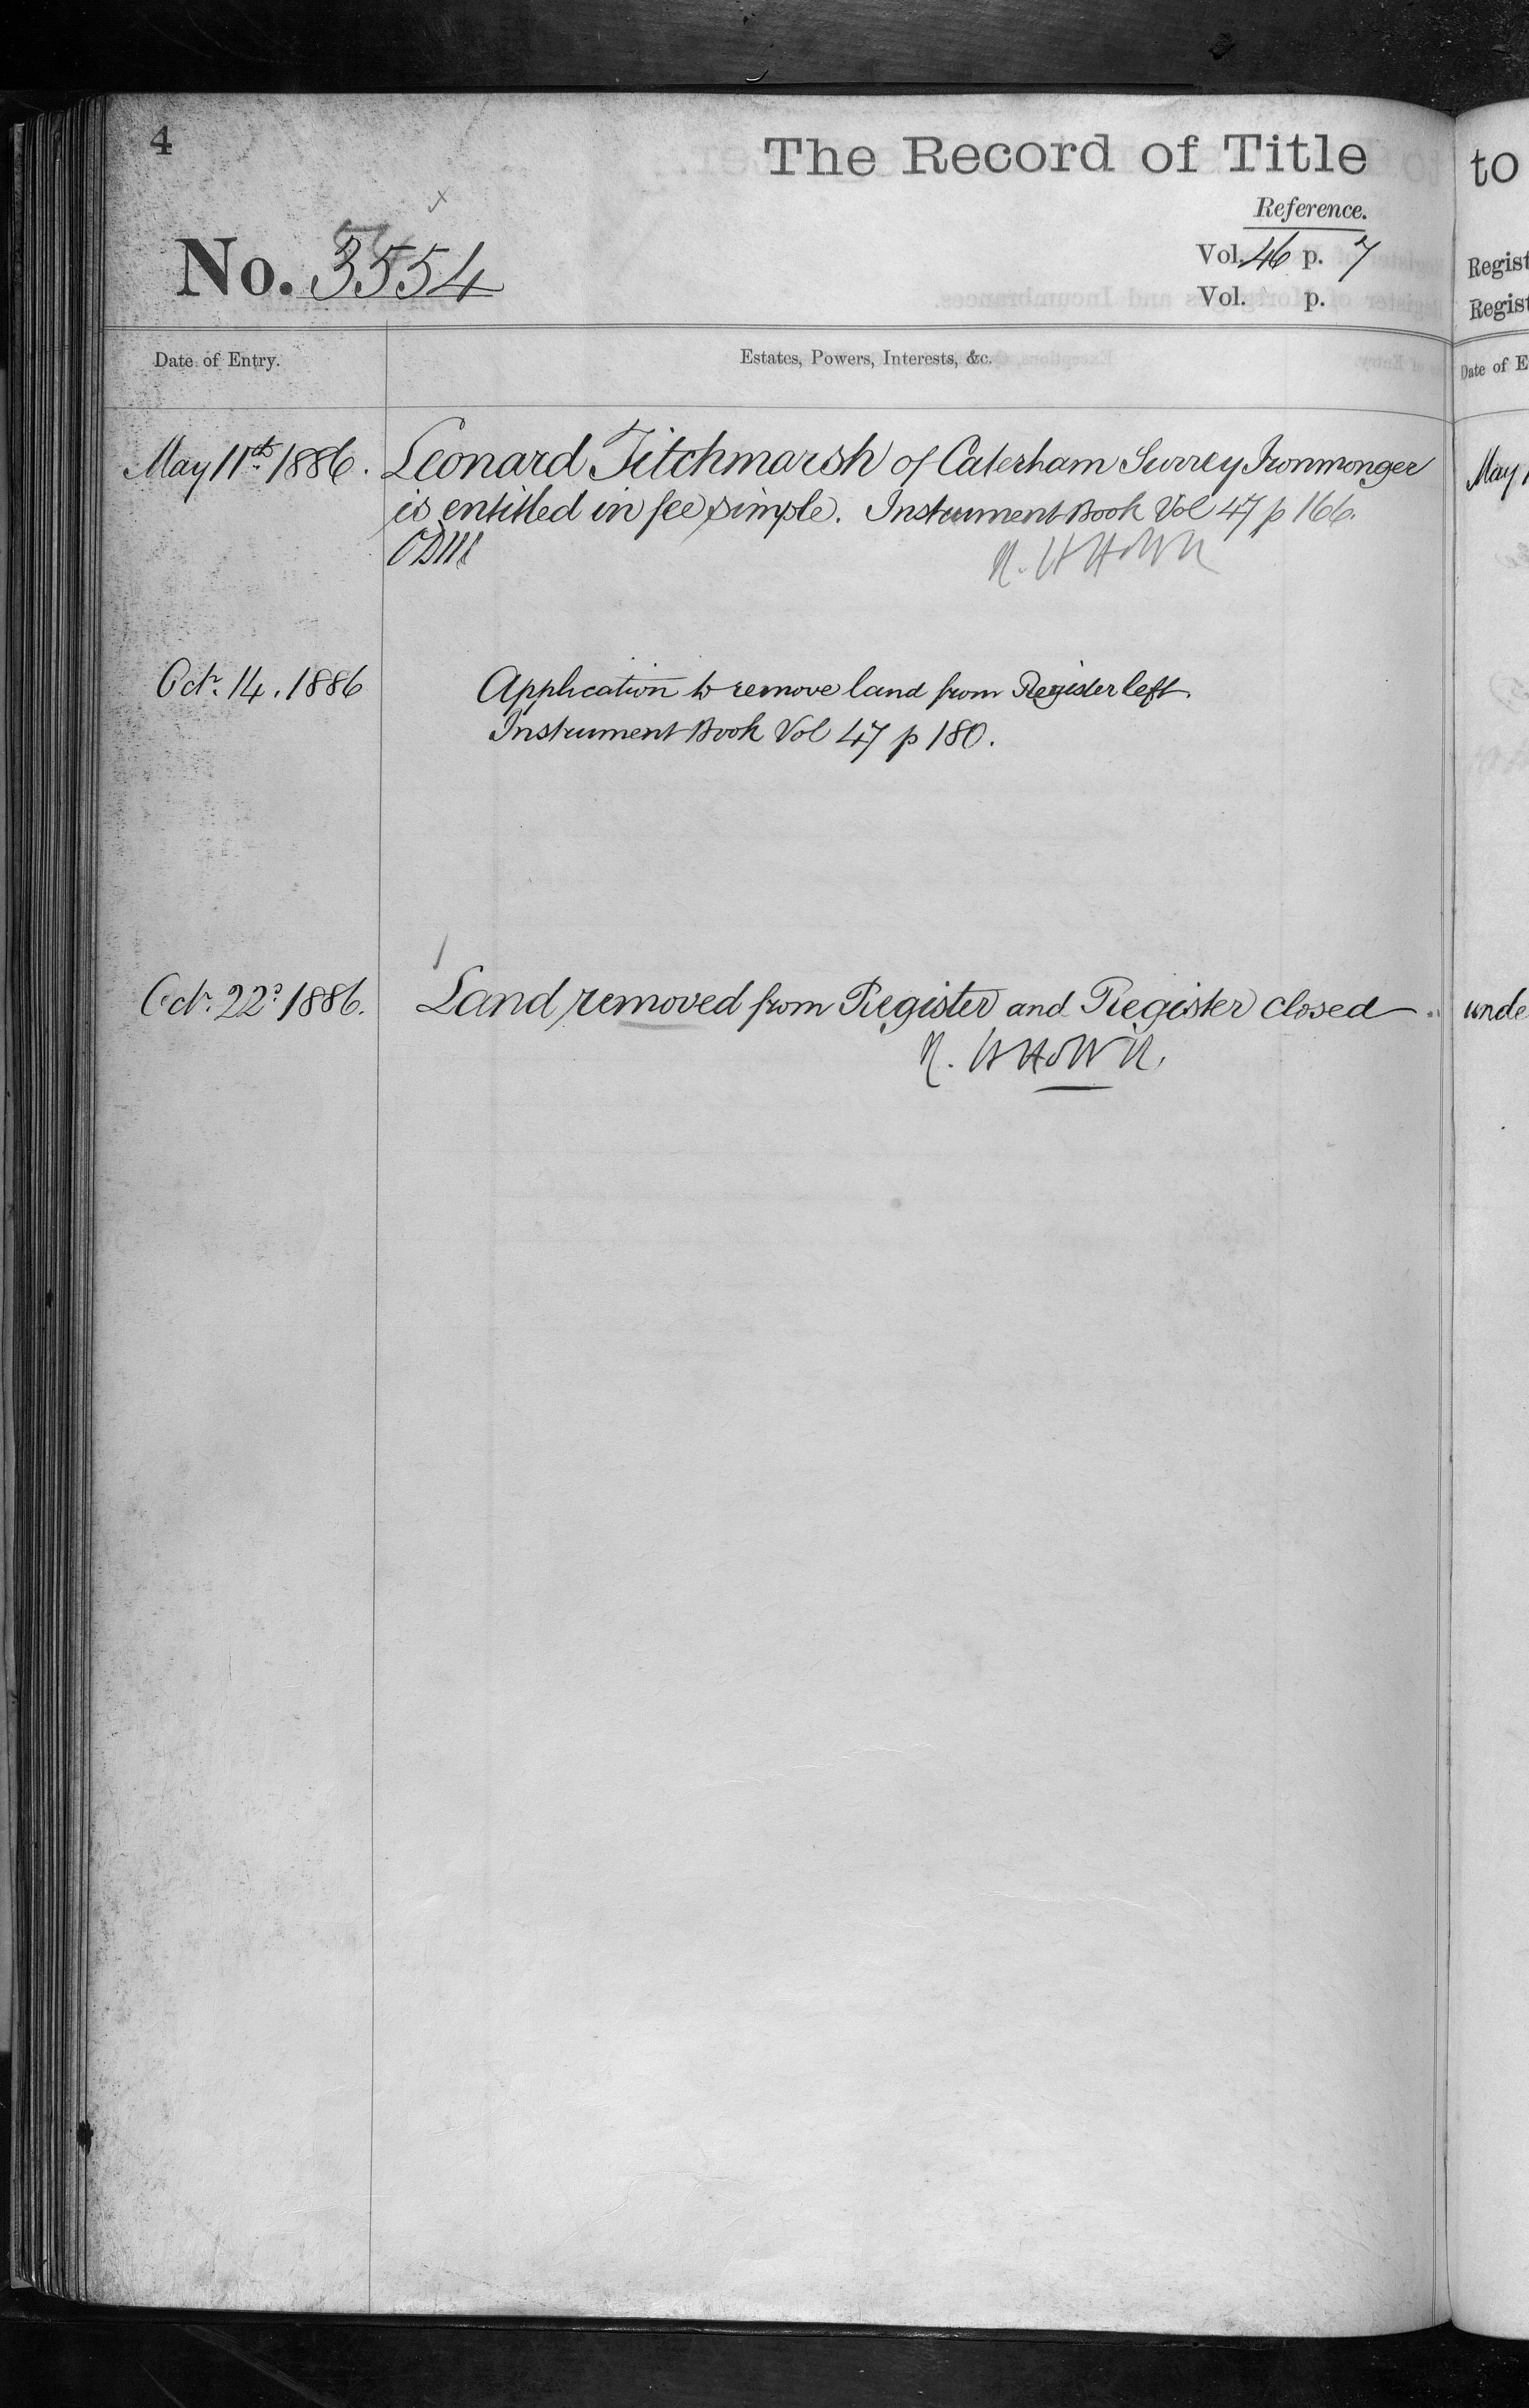 4
The Record of Title
Reference.
No. 3554
Vol. 46 p. 7
Vol. p.
Date of Entry.
Estates, Powers, Interests, &c.
May 11th 1886. Leonard Titchmarsh of Caterham Surrey Ironmonger
is entitled in fee simple. Instrument Book Vol 47 p 166.
Octr. 14. 1886 Application to remove land from Register left.
Instrument Book Vol 47 p 180.
Octr. 22d 1886. Land removed from Register and Register closed
to
Regist
Regist
Date of E
May 1
unde